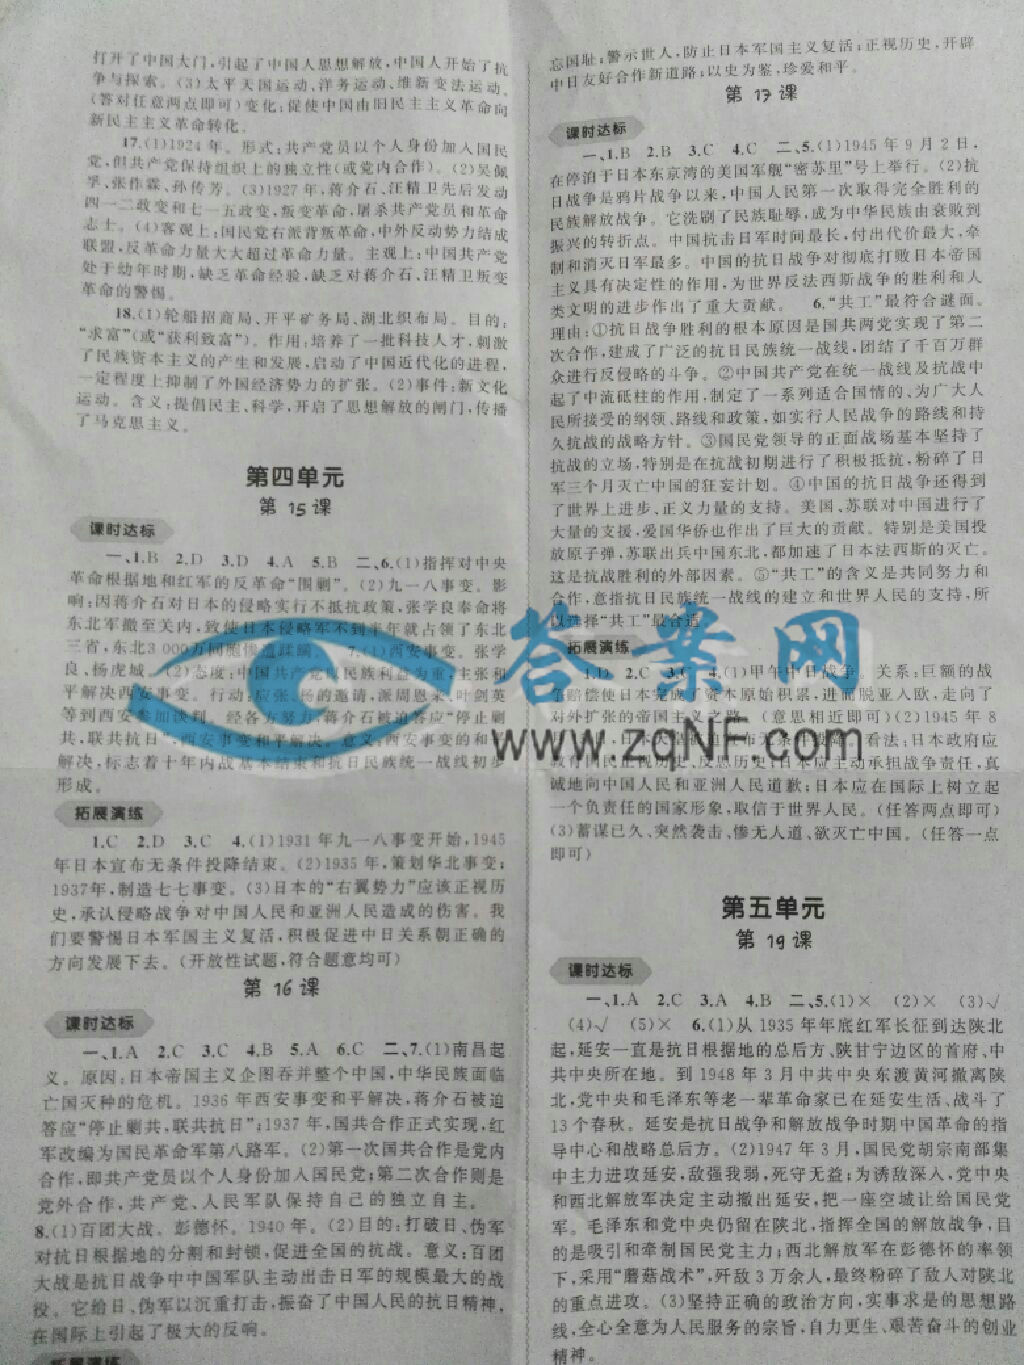 打开了中国大门,引起了中国人思想解放,中国人开始了抗
争与探索。(3)太平天国运动、洋务运动、维新变法运动。
(答对任意两点即可)变化:促使中国由旧民主主义革命向
新民主主义革命转化。
17.(1)1924年。形式:共产党员以个人身份加入国民
党,但共产党保持组织上的独立性(或党内合作)。(2)吴佩
孚、张作霖、孙传芳。(3)1927年,蒋介石、汪精卫先后发动
四一二政变和七一五政变,叛变革命,屠杀共产党员和革命
志士。(4)客观上:国民党右派背叛革命,中外反动势力结成
联盟,反革命力量大大超过革命力量。主观上:中国共产党
处于幼年时期,缺乏革命经验,缺乏对蒋介石、汪精卫叛变
革命的警惕。
18.(1)轮船招商局、开平矿务局、湖北织布局。目的:
“求富”(或“获利致富”)。作用:培养了一批科技人才,刺激
了民族资本主义的产生和发展,启动了中国近代化的进程,
一定程度上抑制了外国经济势力的扩张。(2)事件:新文化
运动。含义:提倡民主、科学,开启了思想解放的闸门,传播
了马克思主义。
第四单元
第15课
课时达标
一、1.B 2.D 3.D 4.A 5.B 二、6.(1)指挥对中央
革命根据地和红军的反革命“围剿”。(2)九一八事变。影
响:因蒋介石对日本的侵略实行不抵抗政策,张学良奉命将
东北军撤至关内,致使日本侵略军不到半年就占领了东北
三省,东北3 000万同胞惨遭蹂躏。 7.(1)西安事变。张学
良、杨虎城。(2)态度:中国共产党以民族利益为重,主张和
平解决西安事变。行动:应张、杨的邀请,派周恩来、叶剑英
等到西安参加谈判。经各方努力,蒋介石被迫答应“停止剿
共,联共抗日”,西安事变和平解决。意义:西安事变的和平
解决,标志着十年内战基本结束和抗日民族统一战线初步
形成。
拓展演练
1.C 2.D 3.C 4.(1)1931年九一八事变开始,1945
年日本宣布无条件投降结束。(2)1935年,策划华北事变;
1937年,制造七七事变。(3)日本的“右翼势力”应该正视历
史,承认侵略战争对中国人民和亚洲人民造成的伤害。我
们要警惕日本军国主义复活,积极促进中日关系朝正确的
方向发展下去。(开放性试题,符合题意均可)
第16课
课时达标
一、1.A 2.C 3.C 4.B 5.A 6.C 二、7.(1)南昌起
义。原因:日本帝国主义企图吞并整个中国,中华民族面临
亡国灭种的危机。1936年西安事变和平解决,蒋介石被迫
答应“停止剿共,联共抗日”;1937年,国共合作正式实现,红
军改编为国民革命军第八路军。(2)第一次国共合作是党内
合作,即共产党员以个人身份加入国民党;第二次合作则是
党外合作,共产党、人民军队保持自己的独立自主。
8.(1)百团大战。彭德怀。1940年。(2)目的:打破日、伪军
对抗日根据地的分割和封锁,促进全国的抗战。意义:百团
大战是抗日战争中中国军队主动出击日军的规模最大的战
役。它给日、伪军以沉重打击,振奋了中国人民的抗日精神,
在国际上引起了极大的反响。
拓展演练
忘国耻;警示世人,防止日本军国主义复活;正视历史,开辟
中日友好合作新道路;以史为鉴,珍爱和平。
第17课
课时达标
一、1.B 2.B 3.C 4.C 二、5.(1)1945年9月2日,
在停泊于日本东京湾的美国军舰“密苏里”号上举行。(2)抗
日战争是鸦片战争以来,中国人民第一次取得完全胜利的
民族解放战争。它洗刷了民族耻辱,成为中华民族由衰败到
振兴的转折点。中国抗击日军时间最长,付出代价最大,牵
制和消灭日军最多。中国的抗日战争对彻底打败日本帝国
主义具有决定性的作用,为世界反法西斯战争的胜利和人
类文明的进步作出了重大贡献。 6.“共工”最符合谜面。
理由:①抗日战争胜利的根本原因是国共两党实现了第二
次合作,建成了广泛的抗日民族统一战线,团结了千百万群
众进行反侵略的斗争。②中国共产党在统一战线及抗战中
起了中流砥柱的作用,制定了一系列适合国情的、为广大人
民所接受的纲领、路线和政策,如实行人民战争的路线和持
久抗战的战略方针。③国民党领导的正面战场基本坚持了
抗战的立场,特别是在抗战初期进行了积极抵抗,粉碎了日
军三个月灭亡中国的狂妄计划。④中国的抗日战争还得到
了世界上进步、正义力量的支持。美国、苏联对中国进行了
大量的支援,爱国华侨也作出了巨大的贡献。特别是美国投
放原子弹,苏联出兵中国东北,都加速了日本法西斯的灭亡。
这是抗战胜利的外部因素。⑤“共工”的含义是共同努力和
合作,意指抗日民族统一战线的建立和世界人民的支持,所
以选择“共工”最合适
拓展演练
1.D 2.C 3.C 4.(1)甲午中日战争。关系:巨额的战
争赔偿使日本完成了资本原始积累,进而脱亚入欧,走向了
对外扩张的帝国主义之路。(意思相近即可)(2)1945年8
日本天皇被迫宣布无条件投降。看法:日本政府应
教育国民正视历史、反思历史;日本应主动承担战争责任,真
诚地向中国人民和亚洲人民道歉;日本应在国际上树立起
一个负责任的国家形象,取信于世界人民。(任答两点即可)
(3)蓄谋已久、突然袭击、惨无人道、欲灭亡中国。(任答一点
即可)
第五单元
第19课
课时达标
一、1.A 2.C 3.A 4.B 二、5.(1)× (2)× (3)√
(4)√ (5)× 6.(1)从1935年年底红军长征到达陕北
起,延安一直是抗日根据地的总后方、陕甘宁边区的首府、中
共中央所在地。到1948年3月中共中央东渡黄河撤离陕
北,党中央和毛泽东等老一辈革命家已在延安生活、战斗了
13个春秋。延安是抗日战争和解放战争时期中国革命的指
导中心和战略总后方。(2)1947年3月,国民党胡宗南部集
中主力进攻延安,敌强我弱,死守无益;为诱敌深入,党中央
和西北解放军决定主动撤出延安,把一座空城让给国民党
军。毛泽东和党中央仍留在陕北,指挥全国的解放战争,目
的是吸引和牵制国民党主力;西北解放军在彭德怀的率领
下,采用“蘑菇战术”,歼敌3万余人,最终粉碎了敌人对陕北
的重点进攻。(3)坚持正确的政治方向,实事求是的思想路
线,全心全意为人民服务的宗旨,自力更生、艰苦奋斗的创业
精神。
答案网
www.zqNF.com